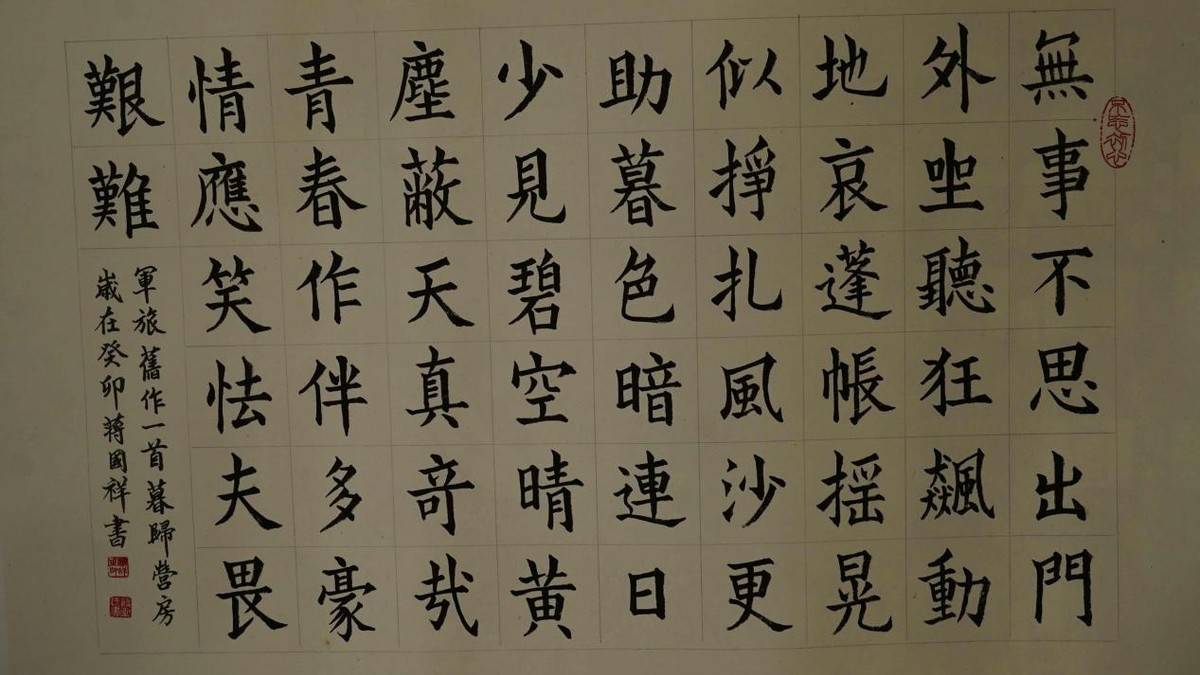 無事不思出門
外坐聽狂飆動
地哀蓬帳摇晃
似掙扎風沙更
助暮色暗連日
少見碧空晴黄
塵蔽天真奇哉
青春作伴多豪
情應笑怯夫畏
艱難
軍旅舊作一首暮歸營房
歲在癸卯蒋國祥書